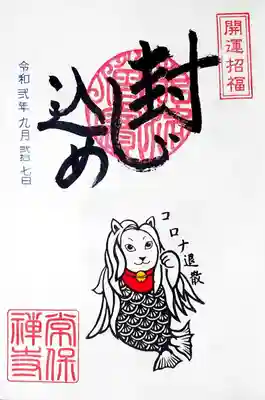 開運招福
封じ
込め
令和弐年九月弐拾七日
コロナ退散
常保
禅寺